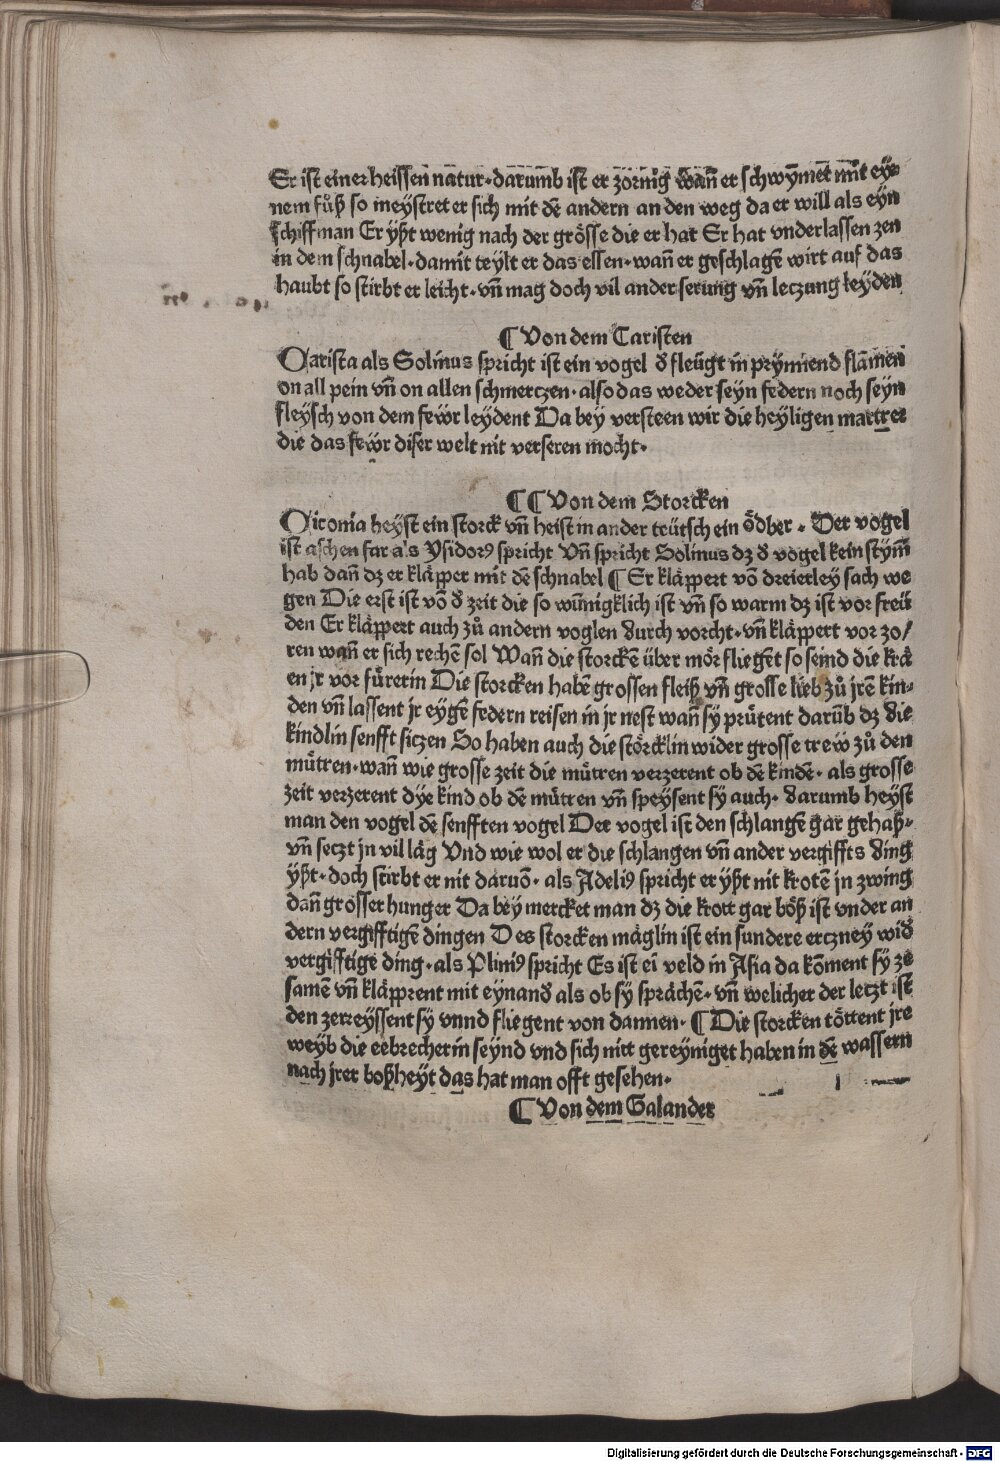 Er ist einer heissen natur· darumb ist er zornig wañ er schwȳmet mit eÿ-
nem fůß so meÿstret er sich mit dē andern an den weg da er will als eÿn
schiffman Er ÿßt wenig nach der grösse die er hat Er hat vnderlassen zen
in dem schnabel· damit teÿlt er das essen· wañ er geschlagē wirt auf das
haubt so stirbt er leicht· vñ mag doch vil ander serung vñ leczung leyden
¶ Von dem Caristen
Carista als Solinus spricht ist ein vogel d̕ fleügt in prÿnnend flāmen
on all pein vñ on allen schmertczen· also das weder seyn federn noch seyn
fleÿsch von dem feẅr leydent Da bey versteen wir die heyligen martrer
die das feẅr diser welt nit verseren mocht·
¶ ¶ Von dem Storcken
Ciconia heyst ein storck vñ heist in ander teütsch ein ödber· Der vogel
ist aschen far als Ysidorꝰ spricht Vñ spricht Solinus dz d̕ vogel kein stym̄
hab dañ dz er kläpper mit dē schnabel ¶ Er kläppert vō dreierley sach we
gen Die erst ist vō d̕ zeit die so wūnigklich ist vñ so warm dz ist vor freü
den Er kläppert auch zů andern voglen durch vorcht· vñ kläppert vor zo/
ren wañ er sich rechē sol Wañ die storckē über mör fliegēt so seind die krä
en jr vor fürerin Die storcken habē grossen fleiß vñ grosse lieb zů jrē kin-
den vñ lassent jr eygē federn reisen in jr nest wañ sy prütent darūb dz die
kindlin senfft siczen So haben auch die störcklin wider grosse treẅ zů den
mütren· wañ wie grosse zeit die mütren verzerent ob dē kindē· als grosse
zeit verzerent dye kind ob dē mütren vñ speysent sy auch· darumb heyst
man den vogel dē senfften vogel Der vogel ist den schlangē gar gehaß·
vñ seczt jn vil läg Vnd wie wol er die schlangen vñ ander vergiffts ding
ÿßt· doch stirbt er nit daruō· als Adelinꝰ spricht er ÿßt nit krotē jn zwing
dañ grosser hunger Da bey mercket man dz die krott gar böß ist vnder an
dern vergifftigē dingen Des storcken mäglin ist ein sundere erczney wid̕
vergifftige ding· als Plinꝰ spricht Es ist eī veld in Asia da kōment sy ze
samē vñ kläpprent mit eynand̕ als ob sy sprächē· vñ welicher der leczt ist
den zerreyssent sy vnnd fliegent von dannen· ¶ Die storcken töttent jre
weyb die eebrecherin seynd vnd sich nitt gereyniget haben in dē wassern
nach jrer boßheyt das hat man offt gesehen·
¶ Von dem Galander
Digitalisierung gefördert durch die Deutsche Forschungsgemeinschaft - DFG